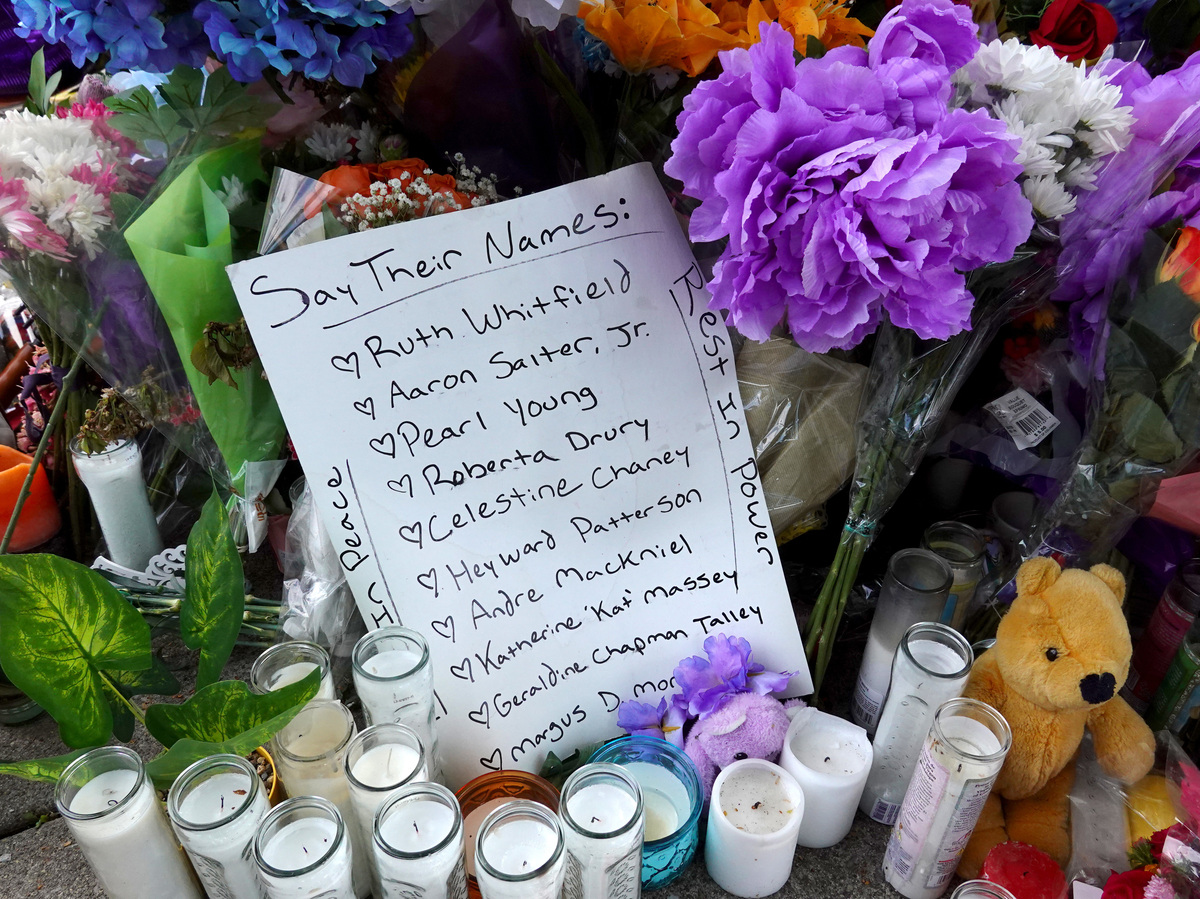 Say Their Names:
Ruth Whitfield
Aaron Salter, Jr.
Pearl Young
Roberta Drury
Celestine Chaney
Heyward Patterson
Andre Mackniel
Katherine 'Kat' Massey
Geraldine Chapman Talley
Margus D.
In Peace
Rest In Power